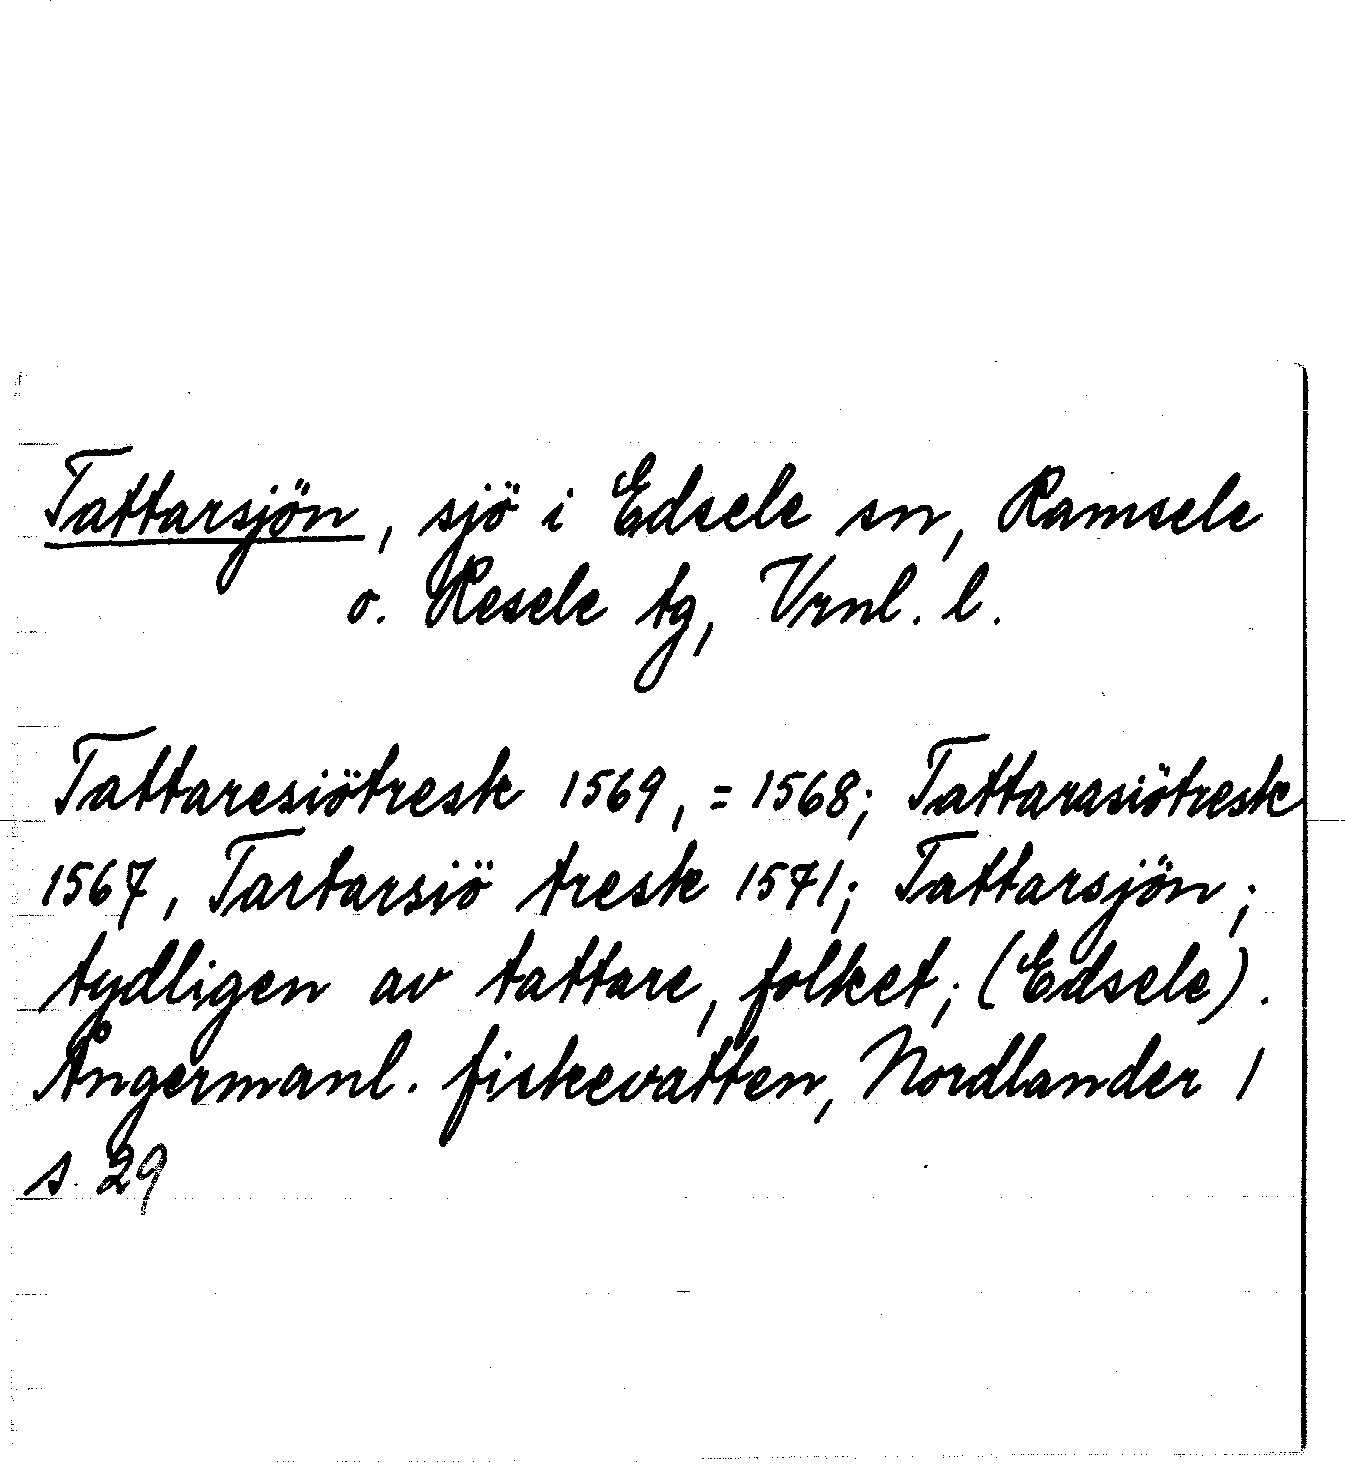 Tattarsjön, sjö i Edsele sn, Ramsele
o. Resele tg, Vrnl. l.
Tattaresiötresk 1569, = 1568; Tattarasiötresk
1567, Tartarsiö tresk 1571; Tattarsjön;
tydligen av tattare, folket; (Edsele).
Ångermanl. fiskevatten, Nordlander 1
s. 29